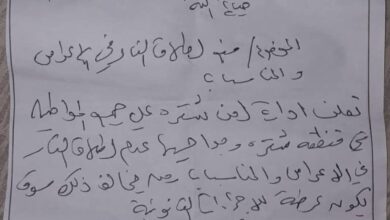 حياك الله
الموضوع / منع إطلاق النار في الاعراس
والمناسبات
تعلن ادارة امن شقره على جميع المواطنين
في منطقة شقره وضواحيها عدم اطلاق النار
في الاعراس والمناسبات ومن يخالف ذلك سوف
يكون عرضة للاجراءات القانونية